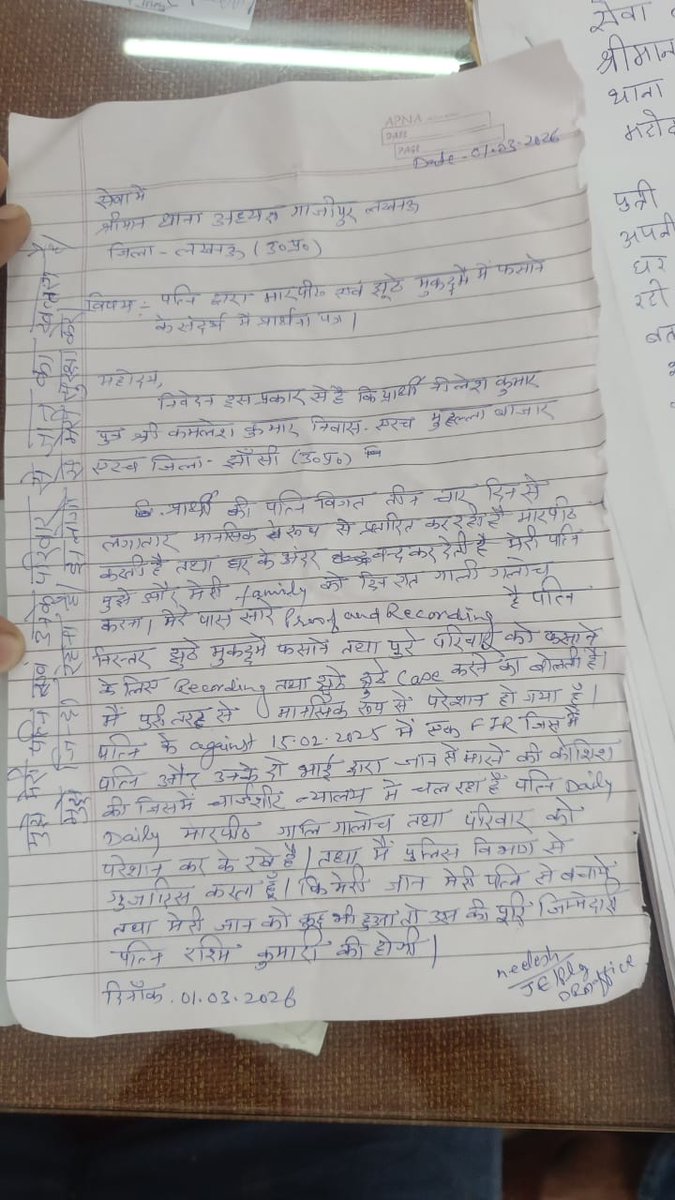 APNA
DATE
PAGE
Date - 01.03.2026
सेवा में
श्रीमान थाना अध्यक्ष गाजीपुर लखनऊ
जिला - लखनऊ (उ०प्र०)
विषय :- पत्नि द्वारा मारपीट एवं झूठे मुकद्दमें में फसाने
के संदर्भ में प्रार्थना पत्र |
महोदय,
निवेदन इस प्रकार से है कि प्रार्थी नीलेश कुमार
पुत्र श्री कमलेश कुमार निवास - एरच मुहल्ला बाजार
एरच जिला - झाँसी (उ०प्र०)
प्रार्थी की पत्नि विगत तीन चार दिन से
लगातार मानसिक रूप से प्रतारित कर रही है मारपीठ
करती है तथा घर के अंदर बन्द कर देती है मेरी पत्नि
मुझे और मेरी family को दिन रात गाली गलोच
करना | मेरे पास सारे Proof and Recording है पत्नि
निरन्तर झूठे मुकद्दमें फसाने तथा पुरे परिवार को फसाने
के लिए Recording तथा झूठे झूठे Case करने को बोलती है |
मैं पुरी तरह से मानसिक रूप से परेशान हो गया हूँ |
पत्नि के against 15.02.2025 में एक FIR जिसमें
पत्नि और उनके दो भाई द्वारा जान से मारने की कोशिश
की जिसमें चार्जशीट न्यालय में चल रहा है पत्नि Daily
Daily मारपीठ गालि गालोच तथा परिवार को
परेशान कर के रखे है | तथा मैं पुलिस विभाग से
गुजारिस करता हूँ | कि मेरी जान मेरी पत्नि से बचाये
तथा मेरी जान को कुछ भी हुआ तो उस की पूरी जिम्मेदारी
पत्नि रश्मि कुमारी की होगी |
दिनाँक . 01.03.2026
neelesh
मुझे मेरी पत्नि एवं उनके परिवार से जान का खतरा है
सेवा
श्रीमान
थाना
महोद
पुत्री
अपनी
घर
रही